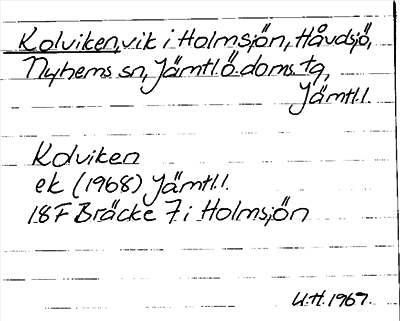 Kolviken, vik i Holmsjön, Håvdsjö,
Nyhems sn, Jämtl. Ö. doms. tg,
Jämtl. l.
Kolviken
ek (1968) Jämtl. l.
18F Bräcke 7 i Holmsjön
U.H. 1967.